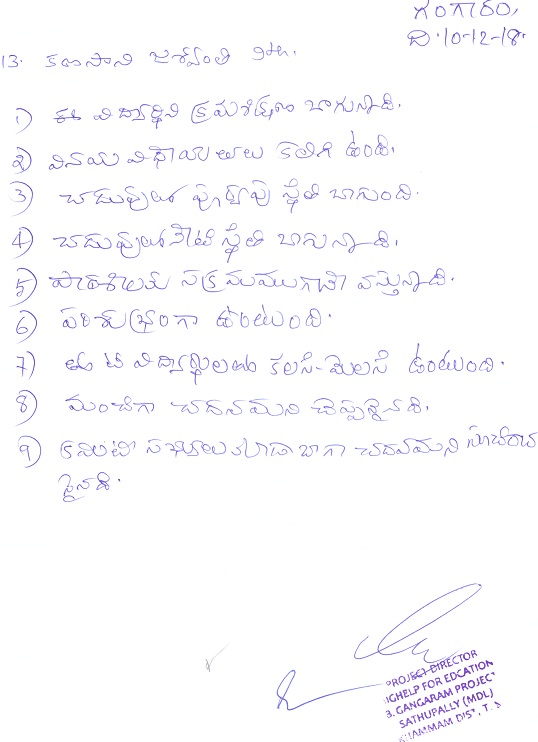 గంగారం,
ది. 10-12-18.
13. కణసాని జశ్వంతి 9వ.
1) ఈ విద్యార్థిని క్రమశిక్షణ బాగున్నది.
2) వినయ విధేయతలు కలిగి ఉంది.
3) చదువులో పూర్వపు స్థితి బాగుంది.
4) చదువులో నేటి స్థితి బాగున్నది.
5) పాఠశాలకు సక్రమముగానే వస్తున్నది.
6) పరిశుభ్రంగా ఉంటుంది.
7) తోటి విద్యార్థులతో కలసి-మెలసి ఉంటుంది.
8) మంచిగా చదవమని చెప్పడమైనది.
9) మిగిలిన సబ్జెక్టులు కూడా బాగా చదవమని సూచించ
డమైనది.
PROJECT DIRECTOR
HIGHELP FOR EDCATION
B. GANGARAM PROJECT
SATHUPALLY (MDL)
KHAMMAM DIST, T.S